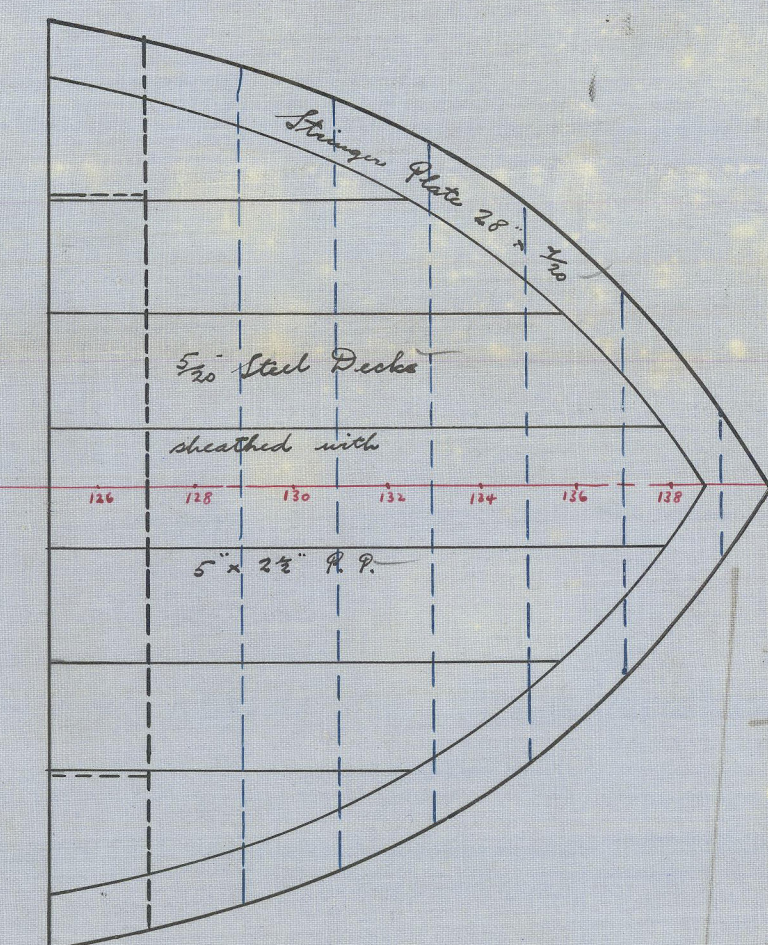 Stringer Plate 28" x 7/20
5/20" Steel Decks
sheathed with
126 128 130 132 134 136 138
5" x 2½" P. P.